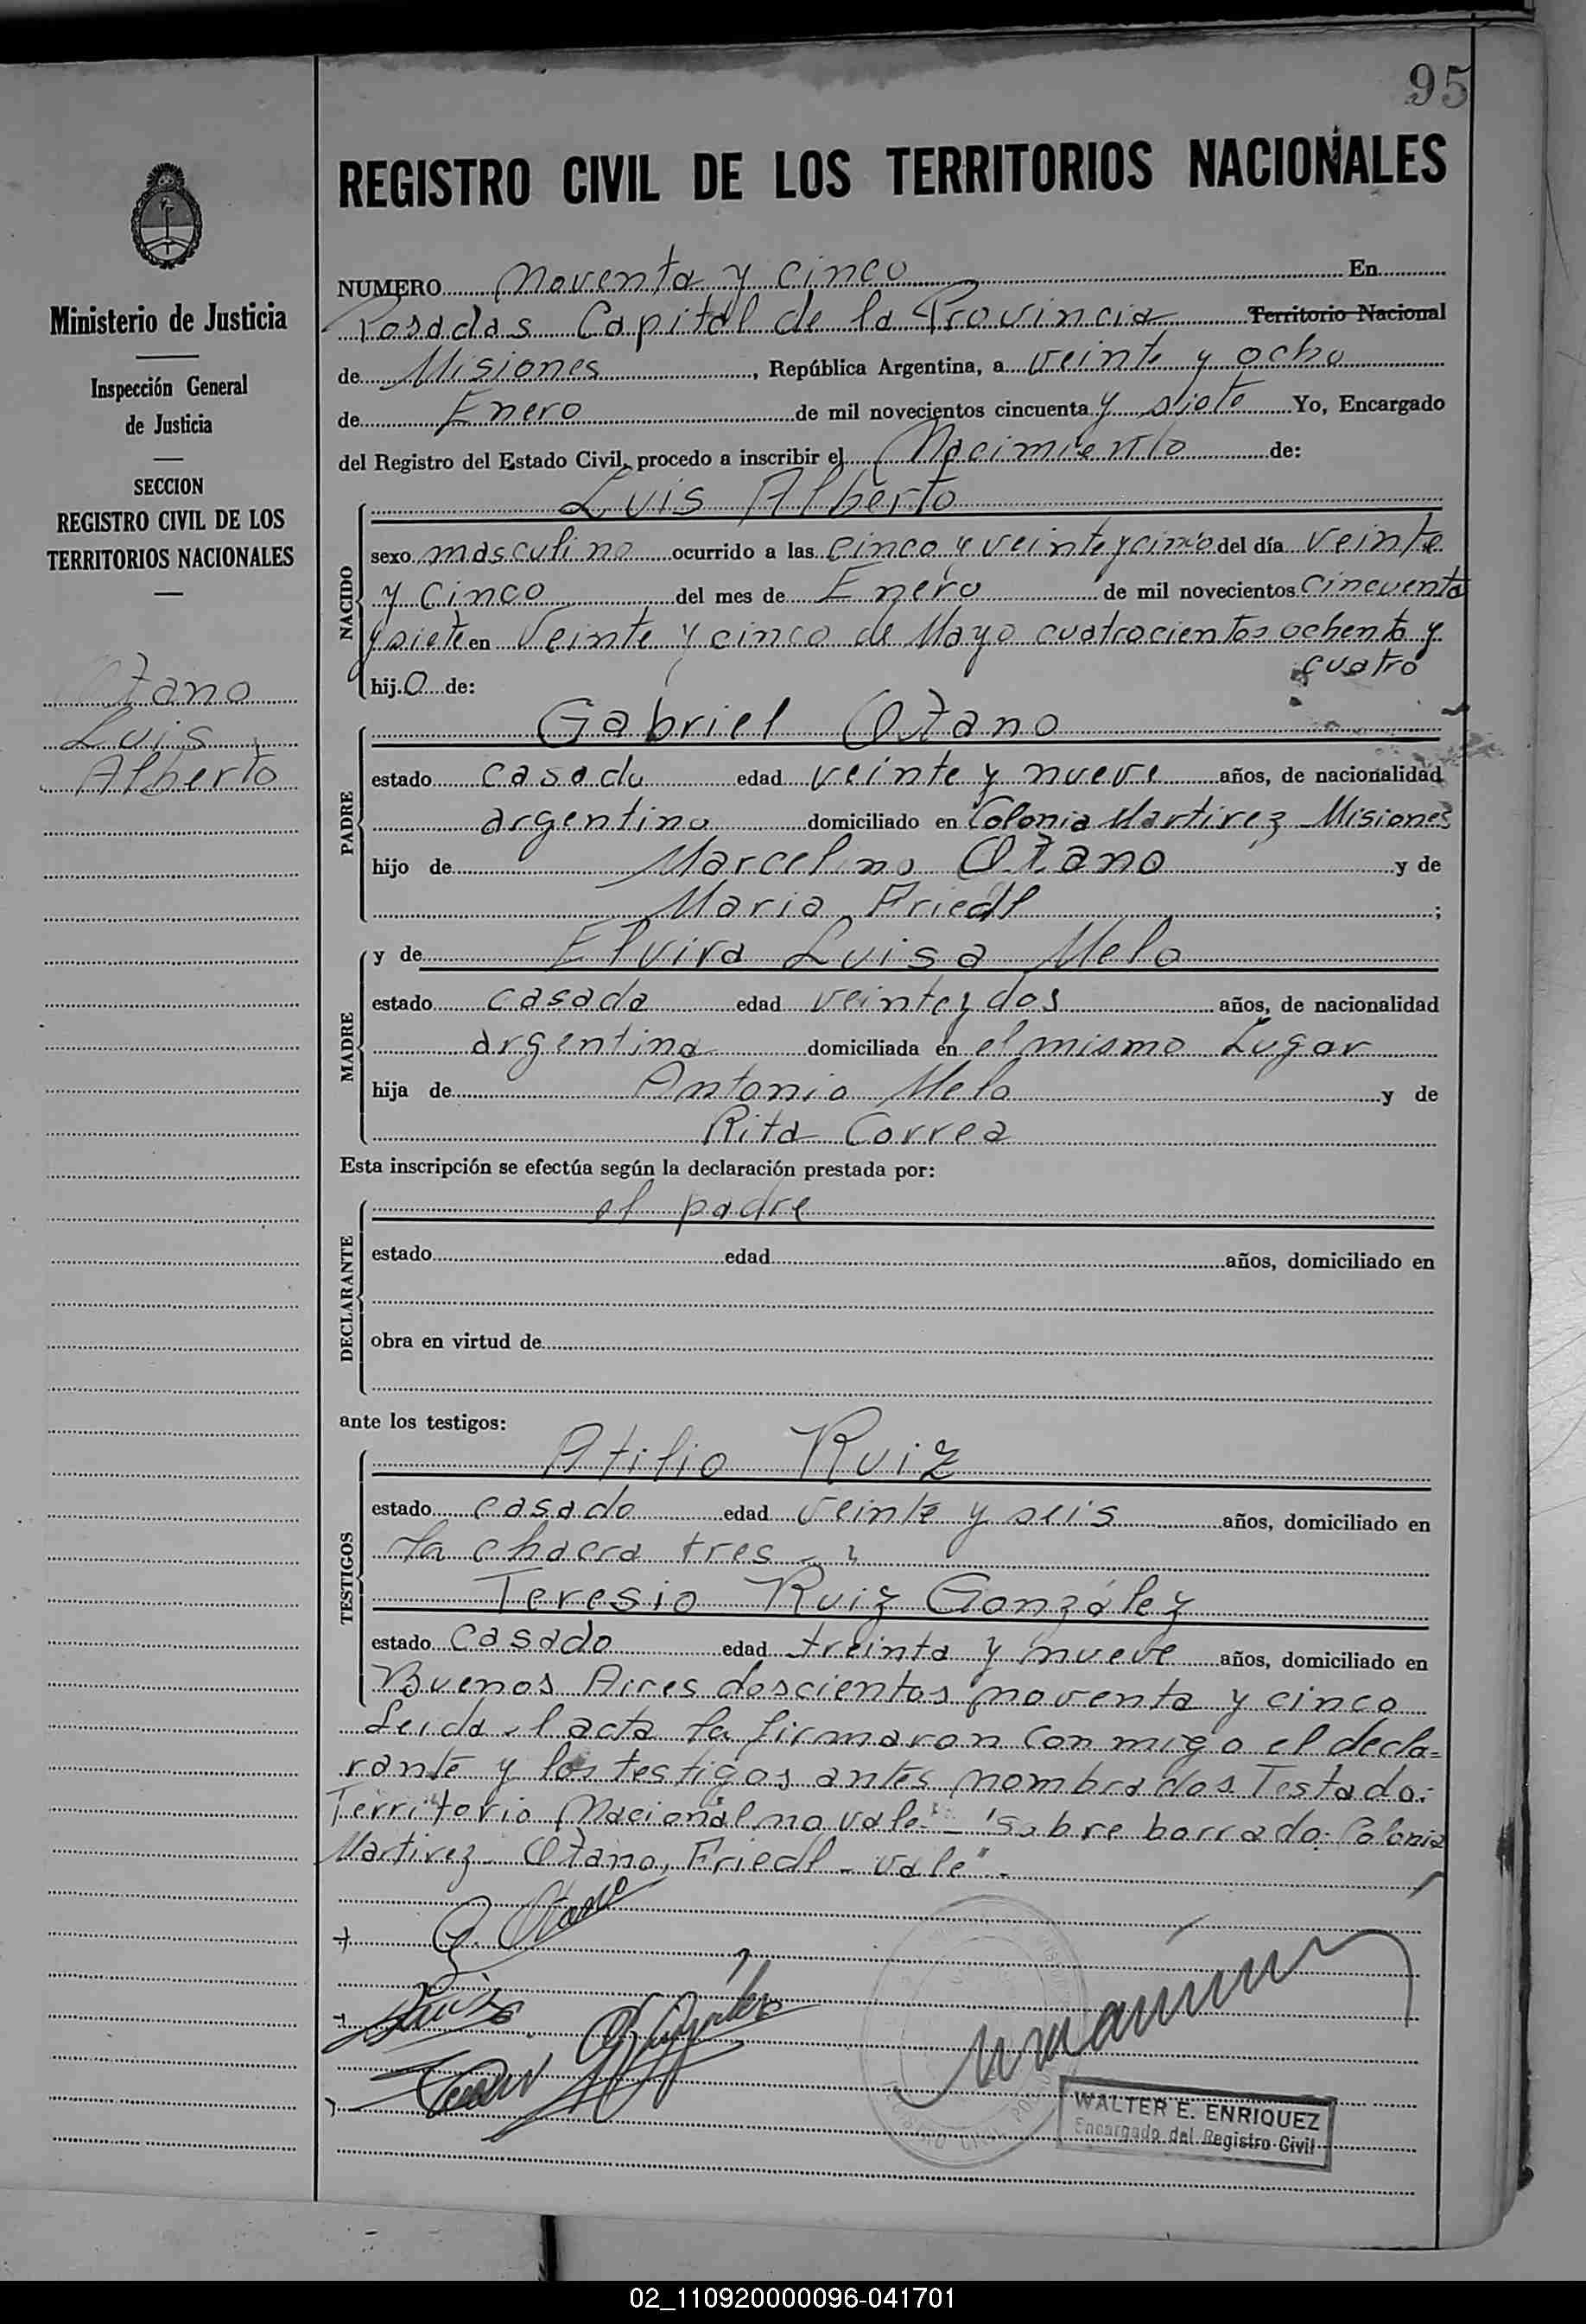 95
REGISTRO CIVIL DE LOS TERRITORIOS NACIONALES
Ministerio de Justicia
Inspección General
de Justicia
SECCION
REGISTRO CIVIL DE LOS
TERRITORIOS NACIONALES
Otano
Luis
Alberto
NUMERO noventa y cinco En
Posadas Capital de la Provincia Territorio Nacional
de Misiones, República Argentina, a veinte y ocho
de Enero de mil novecientos cincuenta y siete Yo, Encargado
del Registro del Estado Civil, procedo a inscribir el Nacimiento de:
NACIDO
Luis Alberto
sexo masculino ocurrido a las cinco y veinte y cinco del día veinte
y cinco del mes de Enero de mil novecientos cincuenta
y siete en Veinte y cinco de Mayo cuatrocientos ochenta y
cuatro
hijo de:
PADRE
Gabriel Otano
estado casado edad veinte y nueve años, de nacionalidad
argentino domiciliado en Colonia Martirez Misiones
hijo de Marcelino Otano y de
Maria Friedl;
MADRE
y de Elvira Luisa Melo
estado casada edad veinte y dos años, de nacionalidad
argentina domiciliada en el mismo Lugar
hija de Antonio Melo y de
Rita Correa
Esta inscripción se efectúa según la declaración prestada por:
DECLARANTE
el padre
estado edad años, domiciliado en
obra en virtud de
ante los testigos:
TESTIGOS
Atilio Ruiz
estado casado edad veinte y seis años, domiciliado en
la chacra tres
Teresio Ruiz González
estado casado edad treinta y nueve años, domiciliado en
Buenos Aires doscientos noventa y cinco
Leida el acta la firmaron conmigo el decla=
rante y los testigos antes nombrados Testado:
Territorio Nacional no vale - "sobre borrado: Colonia
Martirez - Otano, Friedl - vale".-
G. Otano
WALTER E. ENRIQUEZ
Encargado del Registro Civil
02_110920000096-041701